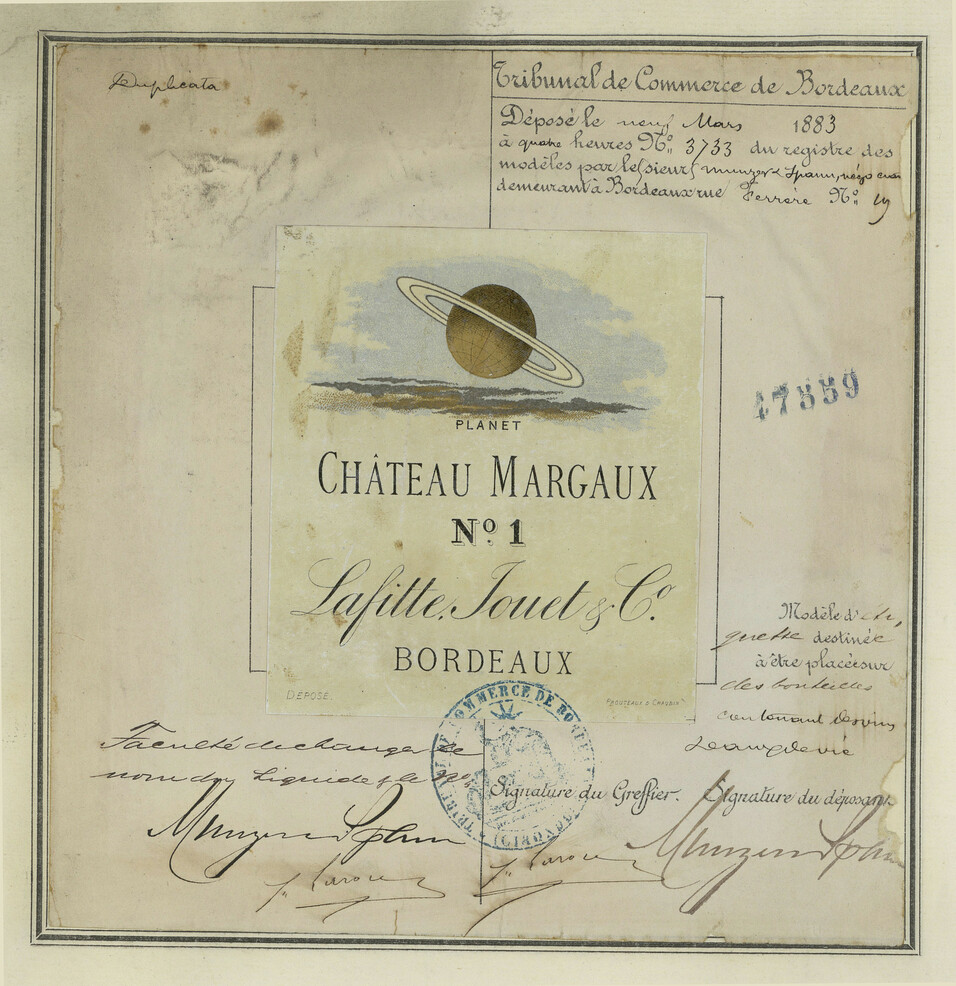 Duplicata
Tribunal de Commerce de Bordeaux
Déposé le neuf Mars 1883
à quatre heures No. 3733 du registre des
modèles par le(sieur)
demeurant à Bordeaux rue Ferrère No. 19
PLANET
CHÂTEAU MARGAUX
No 1
Lafitte, Jouet & Co.
BORDEAUX
DÉPOSÉ.
47559
Modèle d'éti,
quette destinée
à être placée sur
des bouteilles
contenant des vins
Faculté de changer le
nom du liquide & le No.
COMMERCE DE BORDEAUX (GIRONDE)
Signature du Greffier. Signature du déposant.